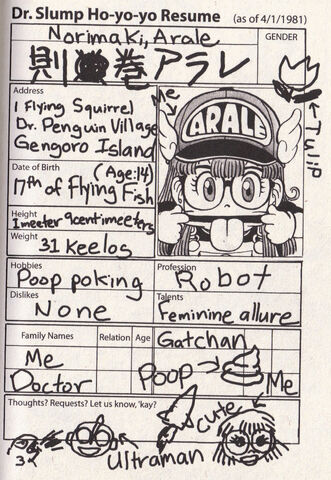 Dr. Slump Ho-yo-yo Resume (as of 4/1/1981)
Norimaki, Arale
GENDER
則巻アラレ
Tulip
Address
1 Flying Squirrel
Dr. Penguin Village
Gengoro Island
Me
ARALE
Date of Birth
(Age:14)
17th of Flying Fish
Height
1meeter 9centimeeters
Weight
31 Keelos
Hobbies
Poop poking
Profession
Robot
Dislikes
None
Talents
Feminine allure
Family Names Relation Age
Gatchan
Me
Poop
Doctor
Me
Thoughts? Requests? Let us know, 'kay?
Cute
Ultraman